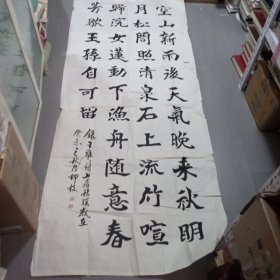 空山新雨後天氣晚來秋明
月松間照清泉石上流竹喧
歸浣女蓮動下漁舟随意春
芳歇王孫自可留
錄王維詩山居秋暝歲在
癸未之秋月